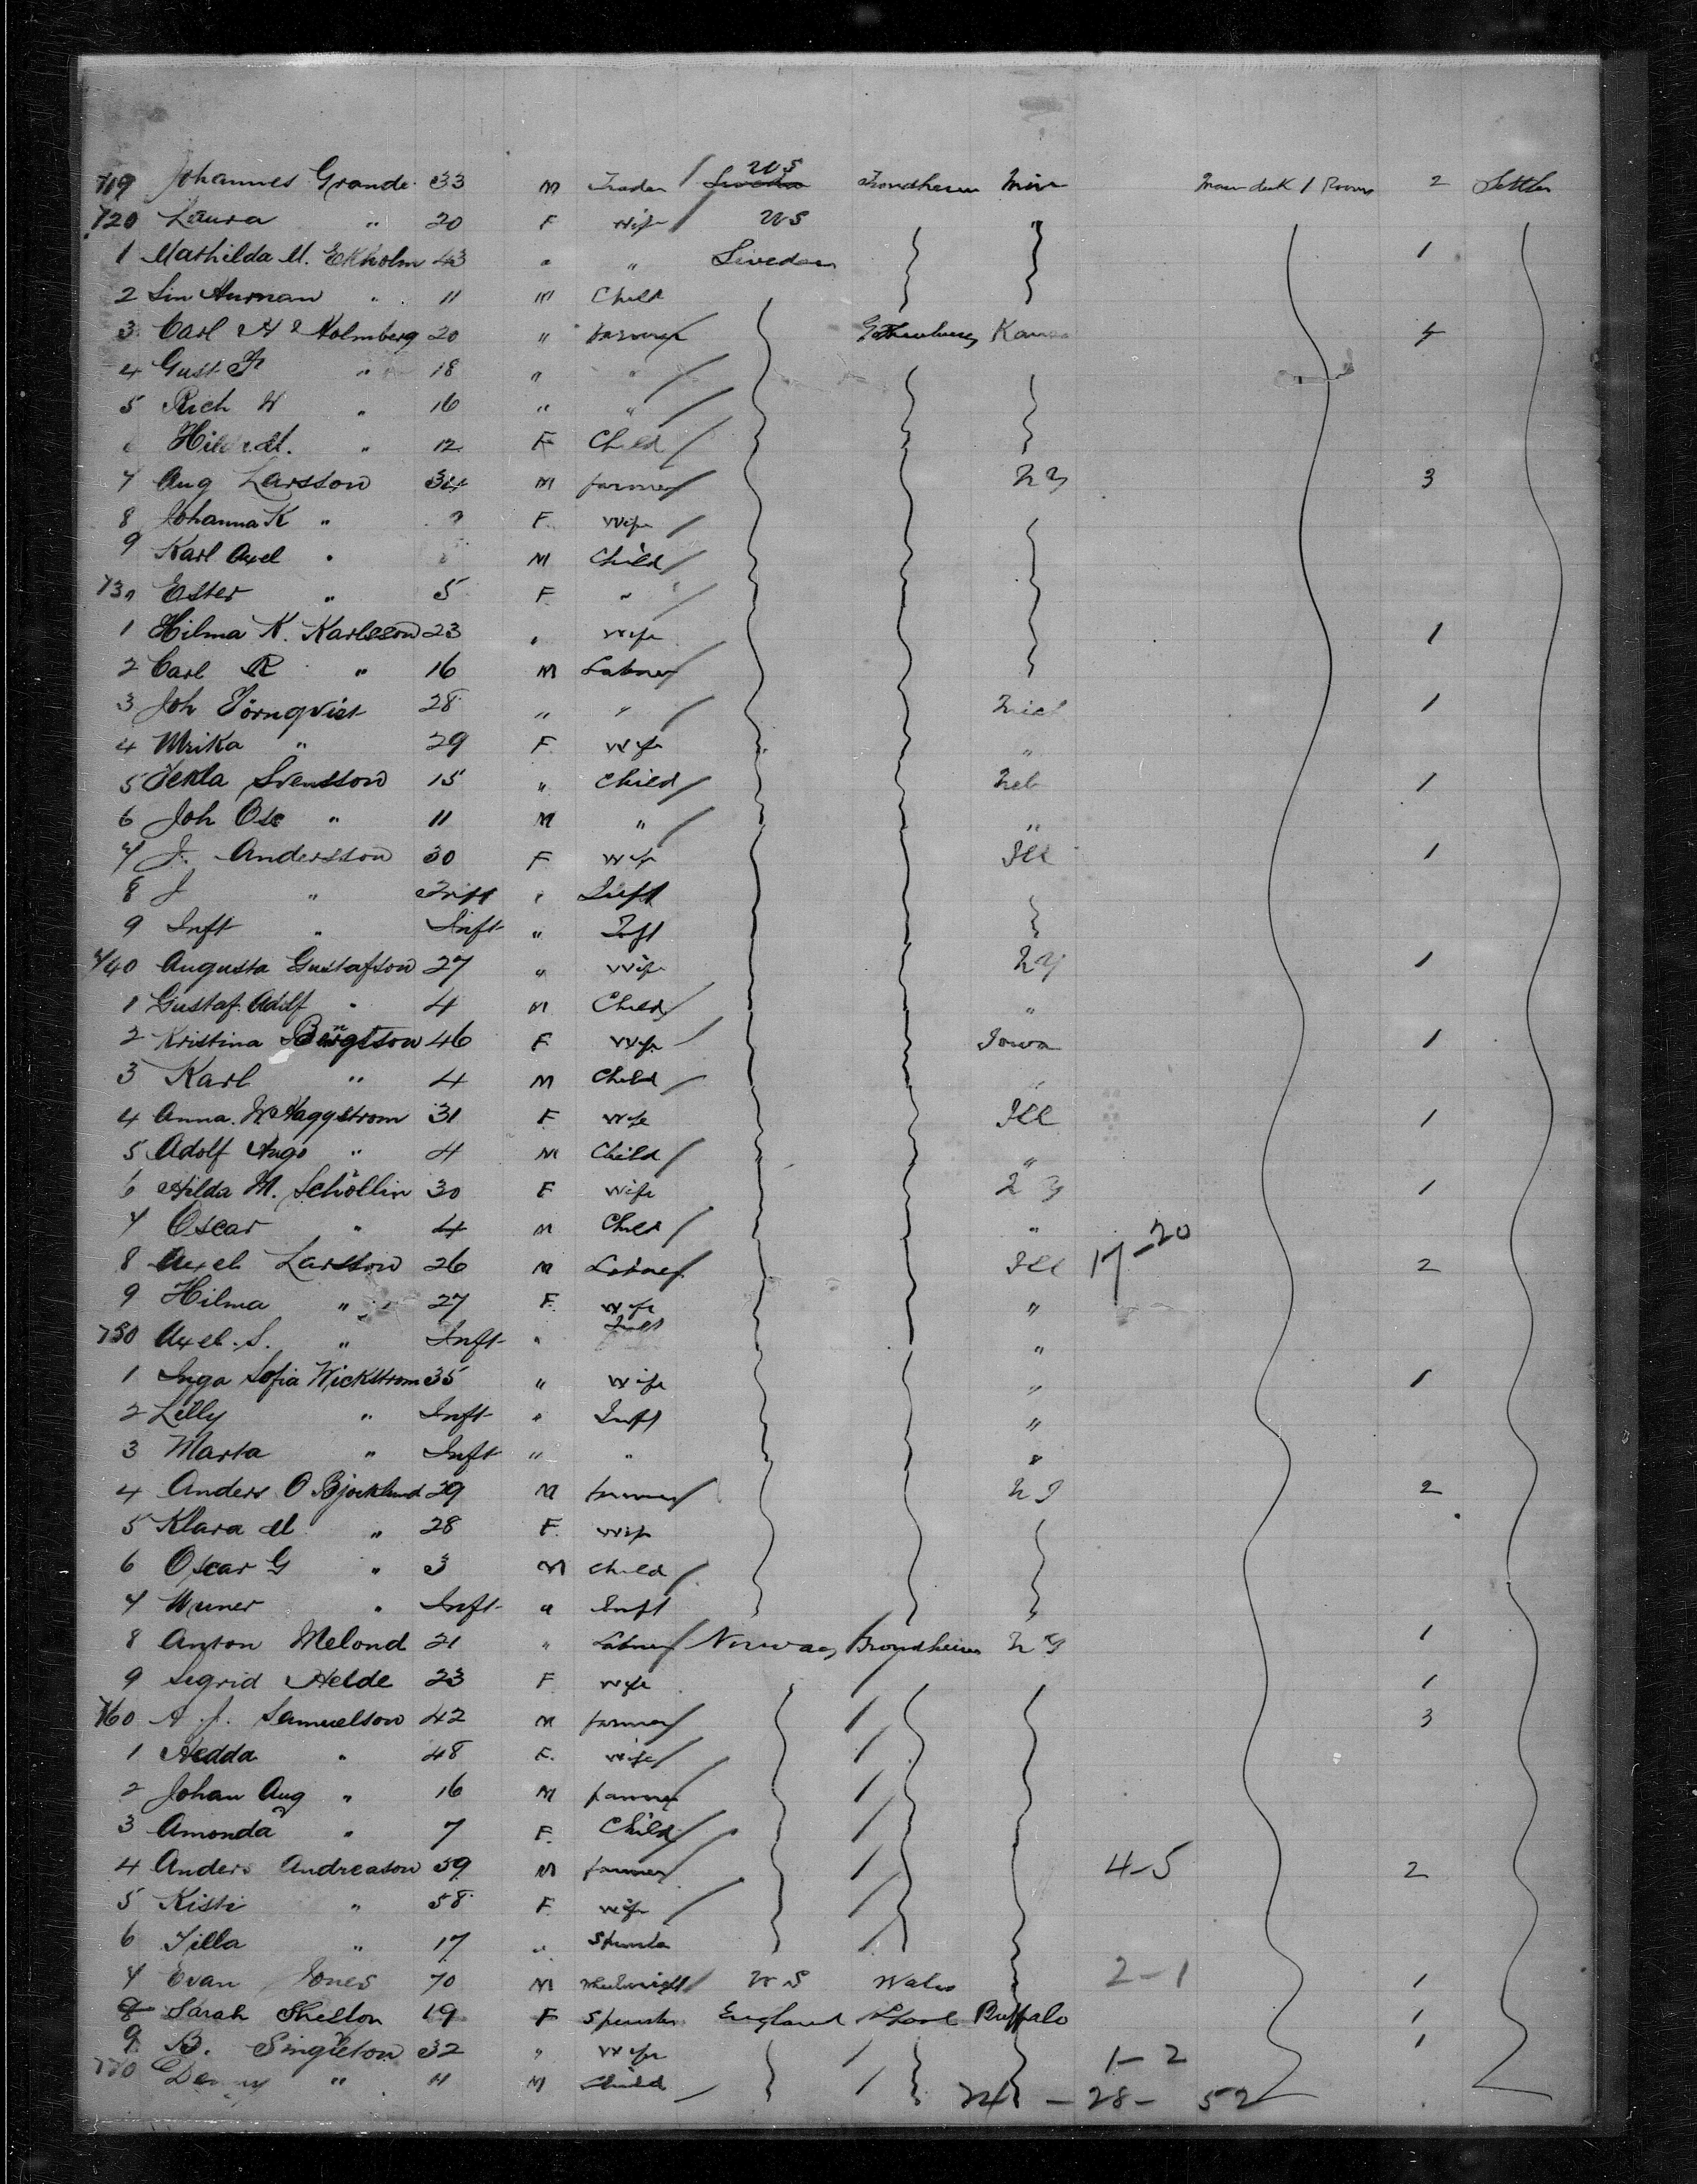 719 Johannes Grande 33 M Trader / Sweden US Trondheim Min Main deck 1 Room 2 Settler
720 Laura " 20 F Wife / US "
1 Mathilda M. Ekholm 43 " " Sweden 1
2 " 11 M Child
3 Carl A Holmberg 20 " farmer Gothenburg Kans 4
4 Gust F " 18 " " /
5 Rich W " 16 " " /
6 " 12 F Child /
7 Aug Larsson 34 M farmer NY 3
8 Johanna K " F. Wife /
9 Karl Axel " M Child /
730 Ester " 5 F " /
1 Hilma K. Karlsson 23 " Wife 1
2 Carl R " 16 M Labner
3 Joh Törnqvist 28 " " / Mich 1
4 Ulrika " 29 F. Wife "
5 Tekla Svensson 15 " Child / Neb 1
6 Joh Osc " 11 M " / "
7 J. Andersson 30 F Wife Ill 1
8 J " Inft " Inft
9 Inft " Inft " Inft
740 Augusta Gustafson 27 " Wife NY 1
1 Gustaf Adolf " 4 M Child / "
2 Kristina Bengtson 46 F Wife / Iowa 1
3 Karl " 4 M Child / "
4 Anna. M Haggstrom 31 F Wife Ill 1
5 Adolf Hugo " 4 M Child / "
6 Hilda M. Schöllin 30 F Wife NY 1
7 Oscar " 4 M Child / "
8 Axel Larsson 26 M Labner Ill 17-20 2
9 Hilma " 27 F. Wife "
750 Axel S. " Inft " Inft "
1 Inga Sofia Wickstrom 35 " Wife " 1
2 Lilly " Inft " Inft "
3 Marta " Inft " " "
4 Anders O Bjorklund 29 M farmer / NJ 2
5 Klara M " 28 F. Wife
6 Oscar G " 3 M Child /
7 " Inft " Inft "
8 Anton Melond 21 " Labner Norway Trondheim NY 1
9 Sigrid Helde 23 F. Wife / 1
760 A. J. Samuelson 42 M farmer / 3
1 Hedda " 48 F. Wife /
2 Johan Aug " 16 M farmer /
3 Amonda " 7 F. Child /
4 Anders Andreason 59 M farmer / 4-5 2
5 Kisti " 58 F. Wife /
6 Tilla " 17 " Spinster /
7 Evan Jones 70 M Wheelwright US Wales 2-1 1
8 Sarah Shelton 19 F Spinster England Lpool Buffalo 1
9 B. Singleton 32 " Wife / 1-2 1
770 " 11 M Child / 24 - 28 - 52